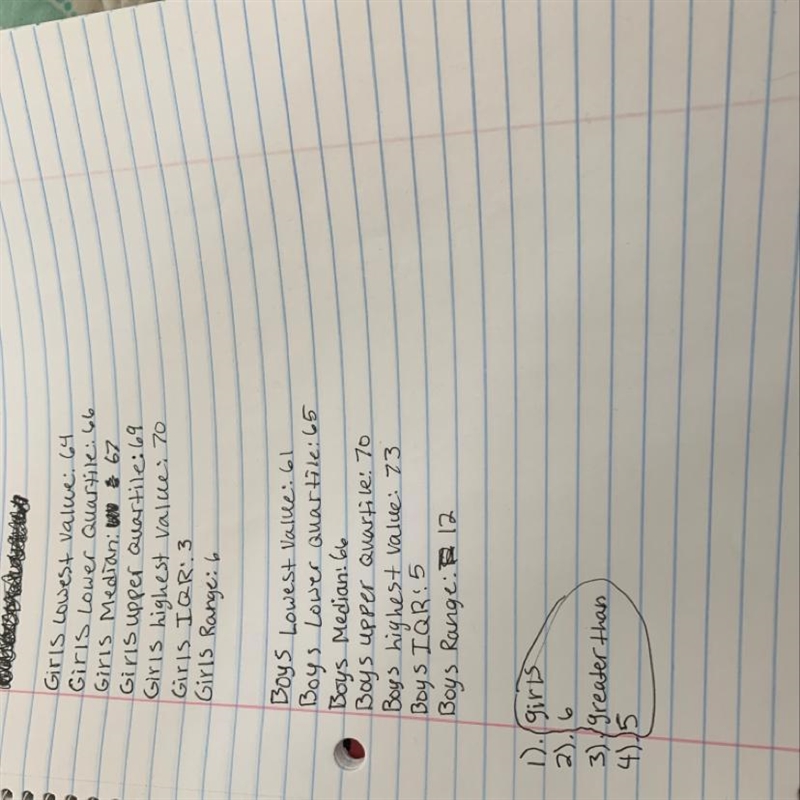 Girls Lowest Value: 64
Girls Lower Quartile: 66
Girls Median: 67
Girls upper quartile: 69
Girls highest value: 70
Girls IQR: 3
Girls Range: 6
Boys Lowest Value: 61
Boys Lower quartile: 65
Boys Median: 66
Boys upper quartile: 70
Boys highest value: 73
Boys IQR: 5
Boys Range: 12
1). girls
2). 6
3). greater than
4). 5